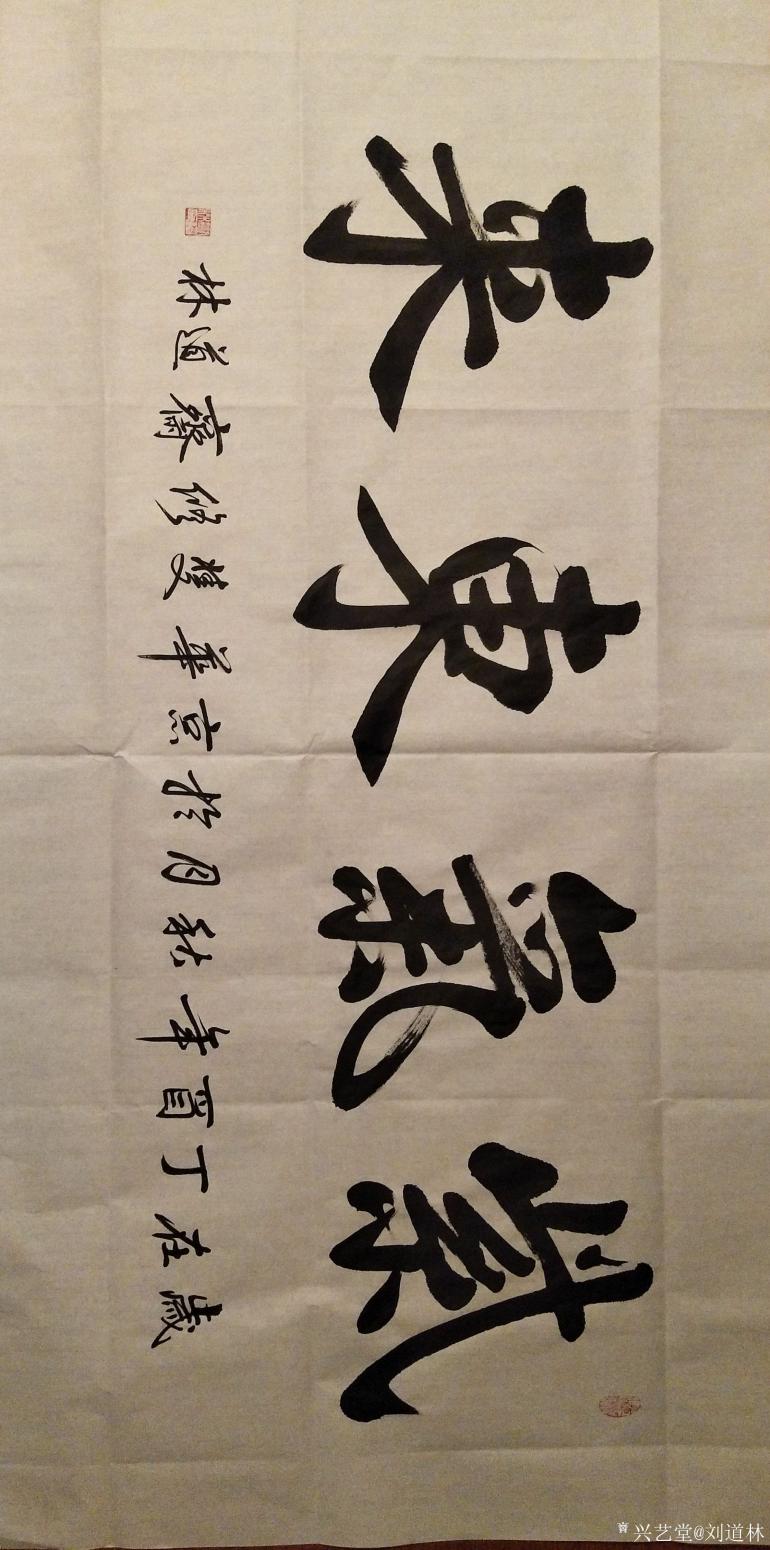 紫氣東來
歲在丁酉年秋月於京華雙修齋道林
兴艺堂@刘道林